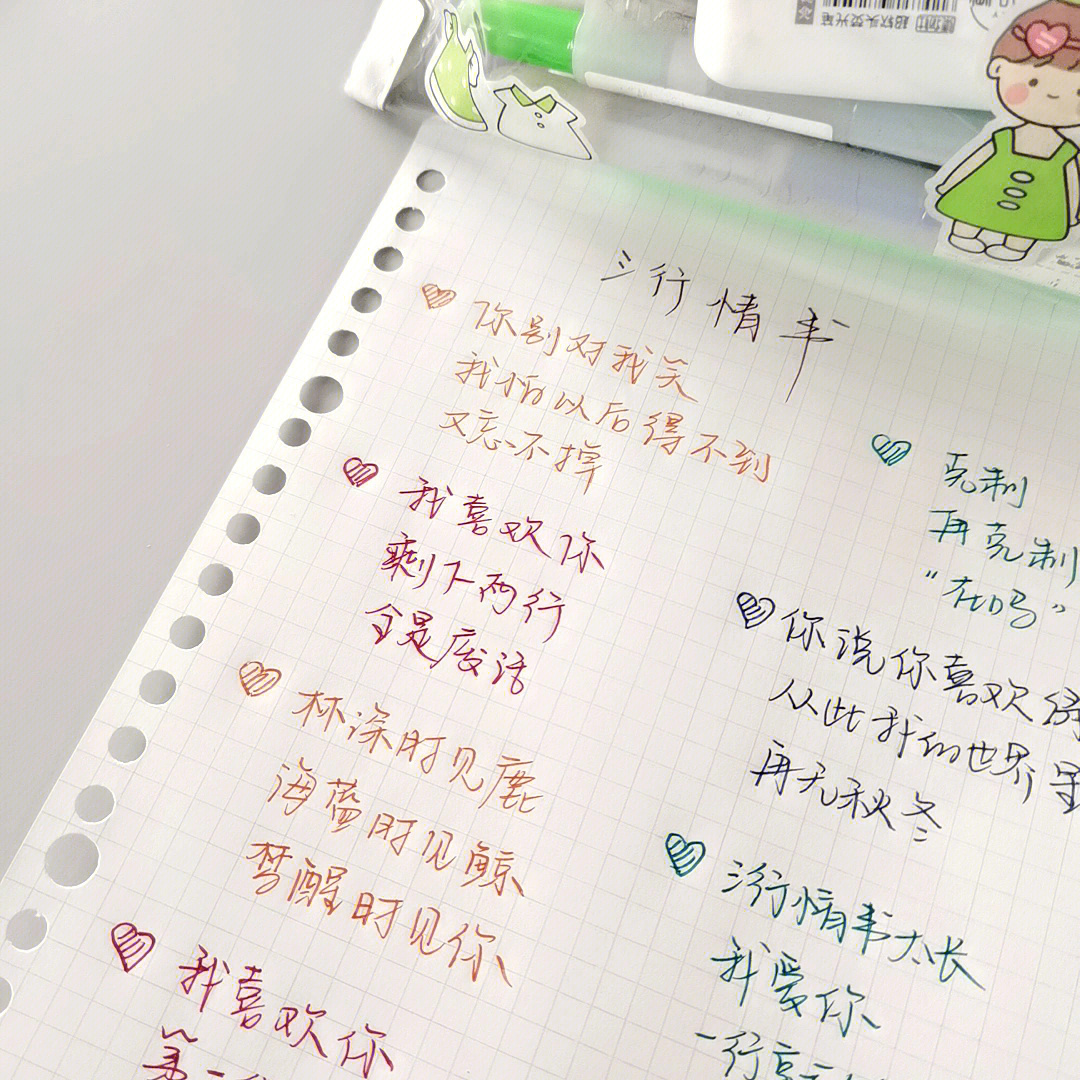 三行情书
你别对我笑
我怕以后得不到
又忘不掉
我喜欢你
剩下两行
全是废话
林深时见鹿
海蓝时见鲸
梦醒时见你
我喜欢你
第一
克制
再克制
“在吗”
你说你喜欢
从此我的世界里
再无秋冬
三行情书太长
我爱你
一行
超软头荧光笔